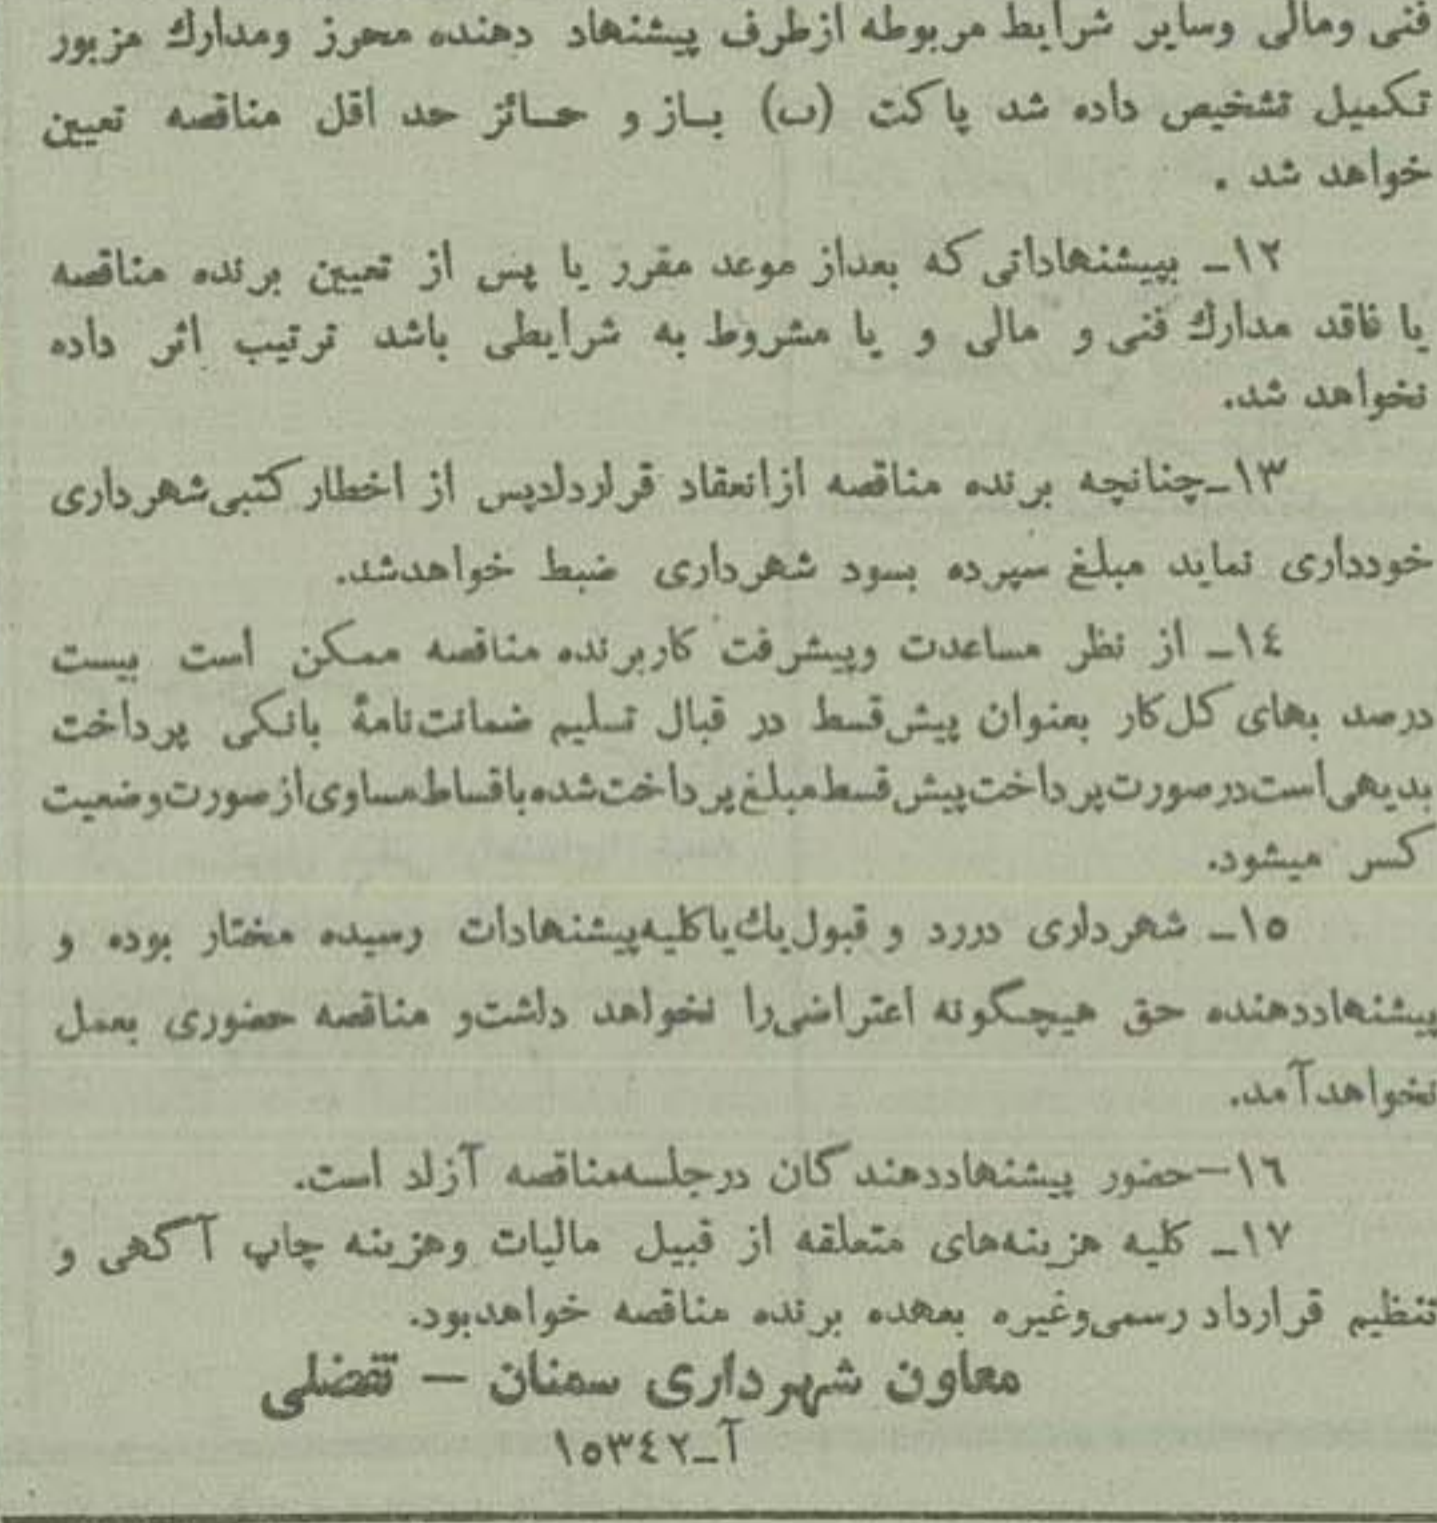 فنی ومالی وسایر شرایط مربوطه ازطرف پیشنهاد دهنده محرز ومدارك مزبور
تکمیل تشخیص داده شد پاکت (ب) بـاز و حـائز حد اقل مناقصه تعیین
خواهد شد .
۱۲ـ بپیشنهاداتی که بعداز موعد مقرر یا پس از تعیین برنده مناقصه
یا فاقد مدارك فنی و مالی و یا مشروط به شرایطی باشد ترتیب اثر داده
نخواهد شد.
۱۳ـچنانچه برنده مناقصه ازانعقاد قراردادپس از اخطار کتبی‌شهرداری
خودداری نماید مبلغ سپرده بسود شهرداری ضبط خواهدشد.
۱٤ـ از نظر مساعدت وپیشرفت کاربرنده مناقصه ممکن است بیست
درصد بهای کل‌کار بعنوان پیش‌قسط در قبال تسلیم ضمانت‌نامهٔ بانکی پرداخت
بدیهی‌است‌درصورت‌پرداخت‌پیش‌قسط‌مبلغ‌پرداخت‌شده‌باقساط‌مساوی‌ازصورت‌وضعیت
کسر میشود.
۱۵ـ شهرداری دررد و قبول‌یك‌یاکلیه‌پیشنهادات رسیده مختار بوده و
پیشنهاددهنده حق هیچگونه اعتراضی‌را نخواهد داشت‌و مناقصه حضوری بعمل
نخواهدآمد.
۱٦—حضور پیشنهاددهندگان درجلسه‌مناقصه آزاد است.
۱۷ـ کلیه هزینه‌های متعلقه از قبیل مالیات وهزینه چاپ آگهی و
تنظیم قرارداد رسمی‌وغیره بعهده برنده مناقصه خواهدبود.
معاون شهرداری سمنان — تفضلی
آـ۱۵۳٤۲